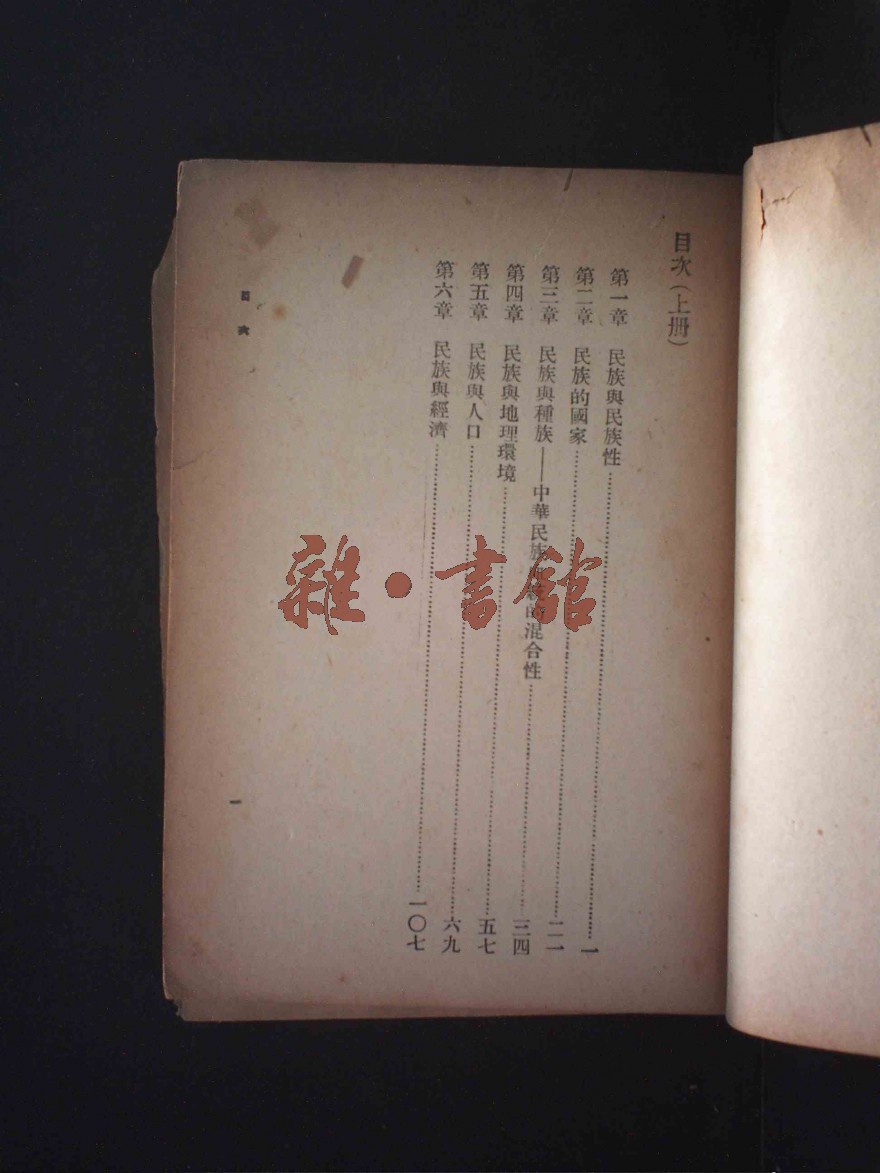 目次(上册)
第一章 民族與民族性……一
第二章 民族的國家……二一
第三章 民族與種族——中華民族 的混合性……三四
第四章 民族與地理環境……五七
第五章 民族與人口……六九
第六章 民族與經濟……一〇七
目次
一
雜·書館